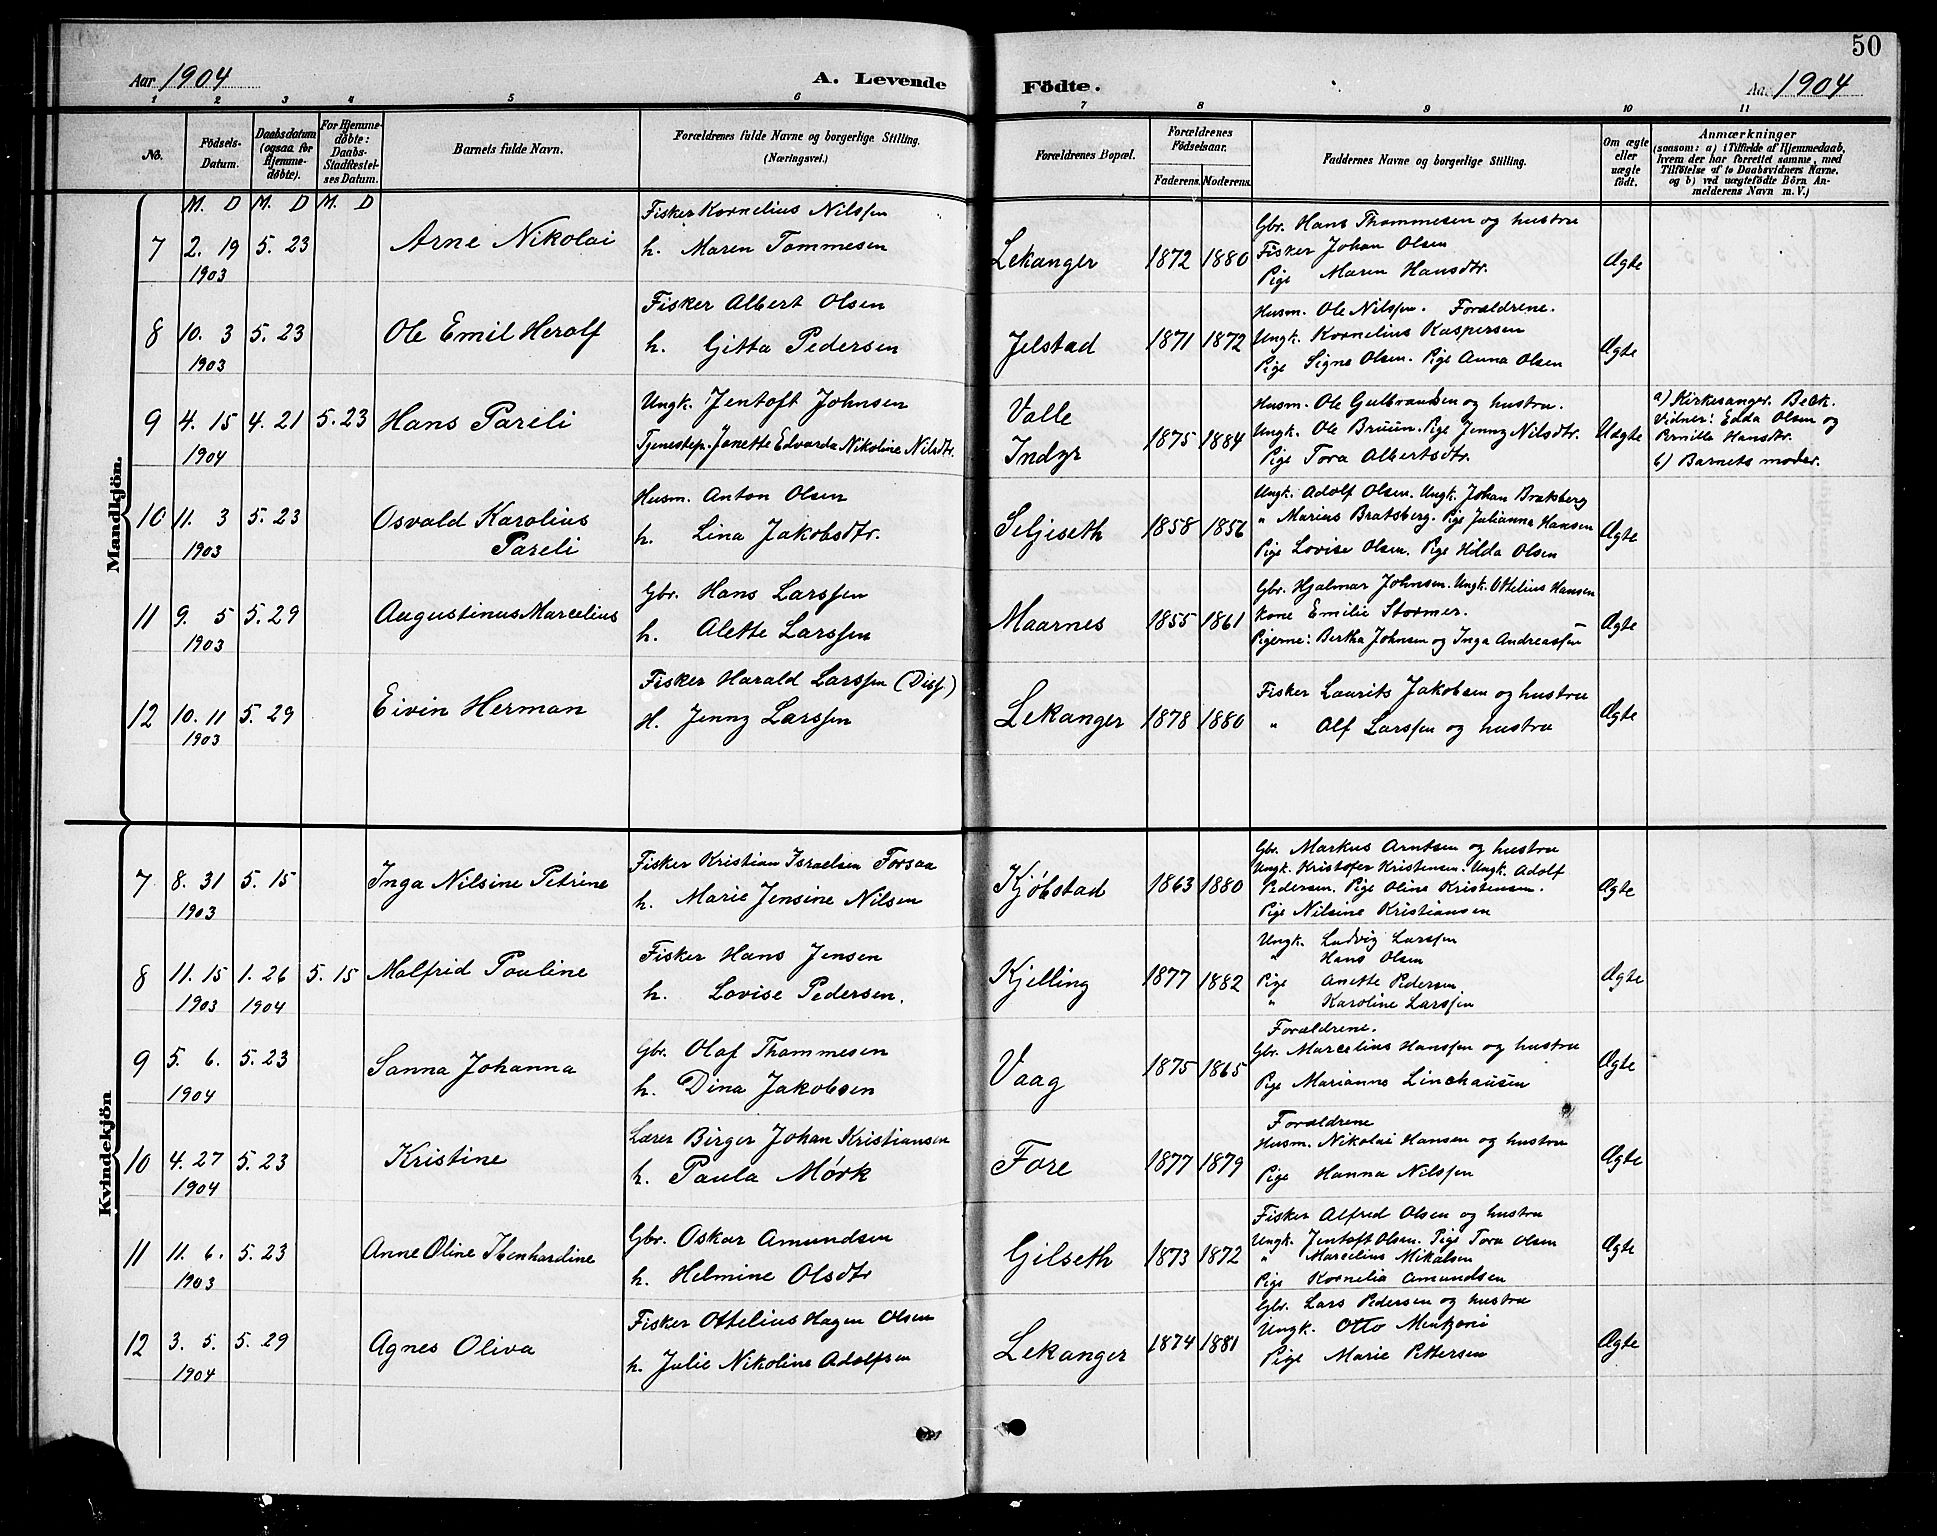 50
Aar 1904 A. Levende Födte. Aar 1904
1 2 3 4 5 6 7 8 9 10 11
No. Födsels-Datum. Daabsdatum (ogsaa for Hjemmedøbte). For Hjemmedøbte: Daabs-Stadfestelses Datum. Barnets fulde Navn. Forældrenes fulde Navne og borgerlige Stilling. (Næringsvei.) Forældrenes Bopæl. Forældrenes Födselsaar. Faderens. Moderens. Faddernes Navne og borgerlige Stilling. Om ægte eller uægte födt. Anmærkninger (saasom: a) i Tilfælde af Hjemmedaab, hvem der har forrettet samme, med Tilföielse af to Daabsvidners Navne, og b) ved uægtefödte Börn Anmelderens Navn m. V.)
M. D M. D M. D
Mandkjön.
7 2. 19 1903 5. 23 Arne Nikolai
Fisker Kornelius Nilssen
h. Maren Tommesen
Lekanger 1872 1880
Gbr. Hans Thommesen og hustru
Fisker Johan Olsen
Pige Maren Hansdtr.
Ægte
8 10. 3 1903 5. 23 Ole Emil Herolf
Fisker Albert Olsen
h. Gitta Pedersen
Jelstad 1871 1872
Husm. Ole Nilssen. Forældrene.
Ungk. Kornelius Kaspersen
Pige Signe Olsen. Pige Anna Olsen
Ægte
9 4. 15 1904 4. 21 5. 23 Hans Pareli
Ungk. Jentoft Johnsen
Tjenestep. Janette Edvarda Nikoline Nilsdtr.
Valle
Indyr
1875 1884
Husm. Ole Gulbrandsen og hustru.
Ungk. Ole Bruun. Pige Jenny Nilsdtr.
Pige Tora Albertsdtr.
Uægte
a) Kirkesanger Beck.
Vidner: Edda Olsen og
Pernille Hansdtr.
b) Barnets moder.
10 11. 3 1903 5. 23 Osvald Karolius
Pareli
Husm. Anton Olsen
h. Lina Jakobsdtr.
Seljeseth 1858 1856
Ungk. Adolf Olsen. Ungk. Johan Bratsberg
" Marius Bratsberg. Pige Julianna Hansen
Pige Lovise Olsen. Pige Hilda Olsen
Ægte
11 9. 5 1903 5. 29 Augustinus Marcelius
Gbr. Hans Larssen
h. Alette Larssen
Maarnes 1855 1861
Gbr. Hjalmar Johnsen. Ungk. Ottelius Hansen
Kone Emilie Stormer.
Pigerne: Bertha Johnsen og Inga Andreassen
Ægte
12 10. 11 1903 5. 29 Eivin Herman
Fisker Harald Larssen (Diss.)
H. Jenny Larssen
Lekanger 1878 1880
Fisker Laurits Jakobsen og hustru
" Alf Larssen og hustru
Ægte
Kvindekjön
7 8. 31 1903 5. 15 Inga Nilsine Petrine
Fisker Kristian Israelsen Forsaa
h. Marie Jensine Nilsen
Kjøbstad 1863 1880
Gbr. Markus Arntsen og hustru
Ungk. Kristofer Kristensen. Ungk. Adolf
Pedersen. Pige Oline Kristensen.
Pige Nilsine Kristiansen
Ægte
8 11. 15 1903 1. 26 1904 5. 15 Malfrid Pauline
Fisker Hans Jensen
h. Lovise Pedersen.
Kjelling 1877 1882
Ungk. Ludvig Larssen
" Hans Olsen
Pige Anette Pedersen
" Karoline Larssen
Ægte
9 5. 6. 1904 5. 23 Sanna Johanna
Gbr. Olaf Thommesen
h. Dina Jakobsen
Vaag 1875 1865
Forældrene.
Gbr. Marcelius Hanssen og hustru
Pige Marianne Linchausen
Ægte
10 4. 27 1904 5. 23 Kristine
Lærer Birger Johan Kristiansen
h. Paula Mörk
Fore 1877 1879
Forældrene
Husm. Nikolai Hansen og hustru
Pige Hanna Nilssen
Ægte
11 11. 6. 1903 5. 23 Anne Oline Ibenhardine
Gbr. Oskar Amundsen
h. Helmine Olsdtr
Gilseth 1873 1872
Fisker Alfred Olsen og hustru
Ungk. Jentoft Olsen. Pige Tora Olsen
" Marcelius Mikalsen
Pige Kornelia Amundsen
Ægte
12 3. 5. 1904 5. 29 Agnes Oliva
Fisker Ottelius Hagen Olsen
h. Julie Nikoline Adolfsen
Lekanger 1874 1881
Gbr. Lars Pedersen og hustru
Ungk. Otto Mentzoni
Pige Marie Pettersen
Ægte